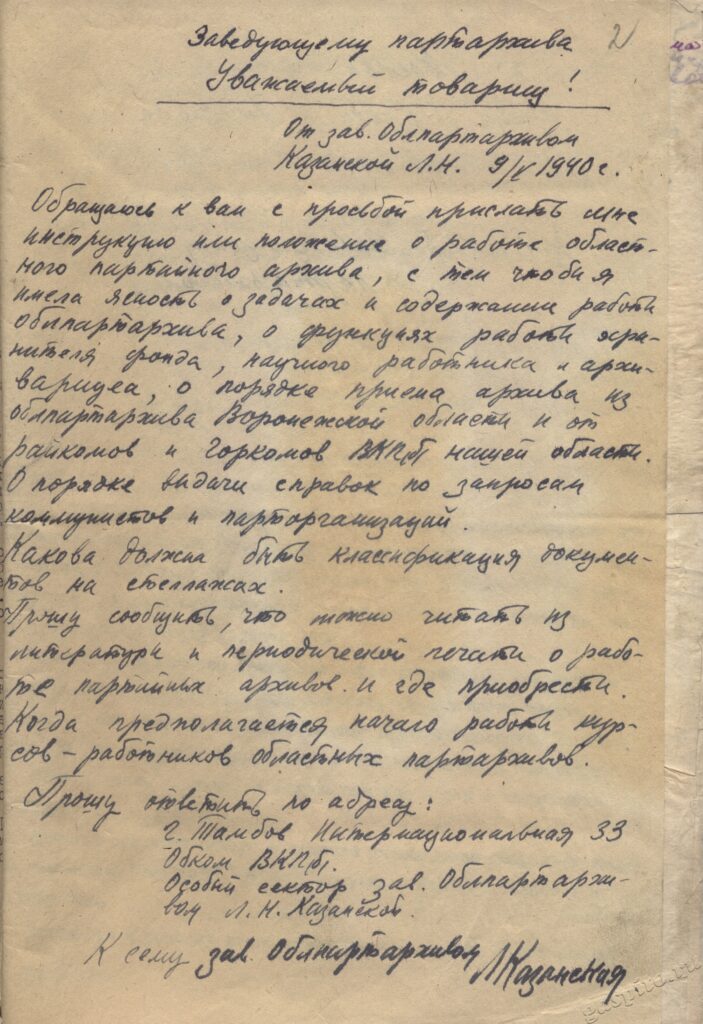 2
Заведующему партархива
Уважаемый товарищ!
От зав. Облпартархивом
Казанской Л.Н. 9/V 1940 г.
Обращаюсь к вам с просьбой прислать мне
инструкцию или положение о работе област-
ного партийного архива, с тем чтобы я
имела ясность о задачах и содержании работы
облпартархива, о функциях работы хра-
нителя фонда, научного работника и архи-
вариуса, о порядке приема архива из
облпартархива Воронежской области и от
райкомов и Горкомов ВКП(б) нашей области.
О порядке выдачи справок по запросам
коммунистов и парторганизаций.
Какова должна быть классификация докумен-
тов на стеллажах.
Прошу сообщить, что можно читать из
литературы и периодической печати о рабо-
те партийных архивов. и где приобрести.
Когда предполагается начало работы кур-
сов – работников областных партархивов.
Прошу ответить по адресу:
г. Тамбов Интернациональная 33
Обком ВКП(б).
Особый сектор зав. Облпартархи-
вом Л.Н. Казанской.
К сему зав. Облпартархивом ЛКазанская
gaspito.ru